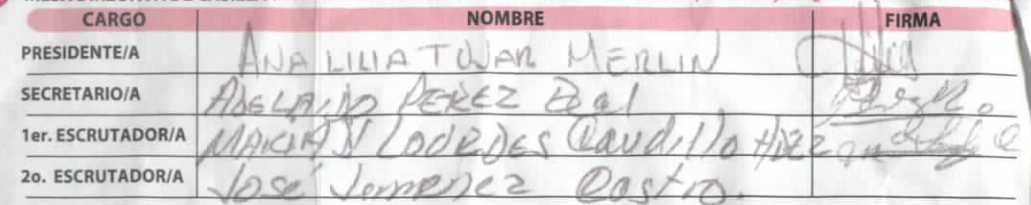 CARGO NOMBRE FIRMA
PRESIDENTE/A ANA LILIA TOVAR MERLIN
SECRETARIO/A ADELAIDO PEREZ
1er. ESCRUTADOR/A MARIA LOURDES Caudillo
2o. ESCRUTADOR/A José Jimenez Castro.